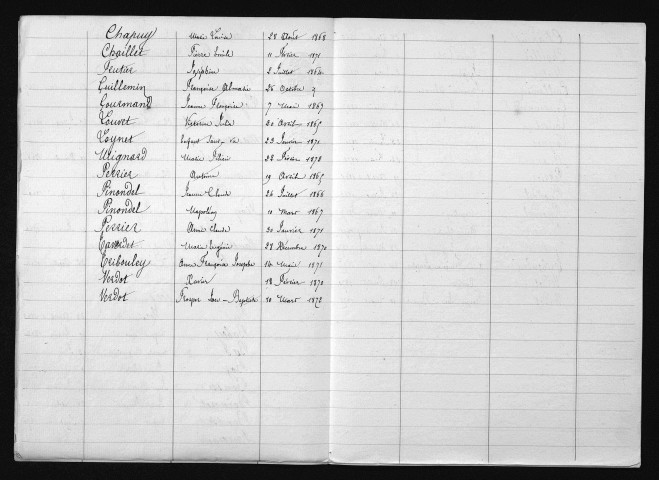 Chapuy Marie Louise 28 Août 1868
Chaillet Pierre Emile 11 Février 1871
Feutar Joséphine 2 Juillet 1864
Guillemin Françoise Almatie 26 Octobre
Gourmand Jeanne Françoise 7 Mai 1869
Louvet Victorin Jules 20 Avril 1865
Loynet Enfant Sans Vie 23 Janvier 1871
Mignard Marie 28 Février 1878
Perrier 19 Avril 1865
Pinondel Jeanne Claude 26 Juillet 1866
Pinondel Napoléon 10 Mars 1867
Perrier Claude 20 Janvier 1871
Marie Eugénie 28 Décembre 1870
Tribouley Anne Françoise Josephe 14 Mai 1872
Verdot Xavier 18 Février 1870
Verdot François Jean-Baptiste 10 Mars 1872